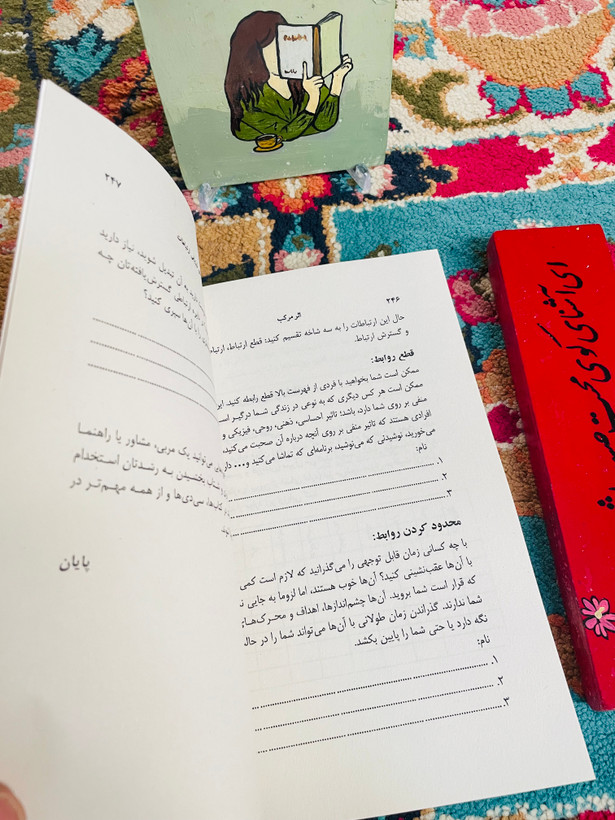 ۲۴۶
اثر مرکب
حال این ارتباطات را به سه شاخه تقسیم کنید: قطع ارتباط،
و گسترش ارتباط.
قطع روابط:
ممکن است شما بخواهید با فردی از فهرست بالا قطع رابطه کنید. این
ممکن است هر کس دیگری که به نوعی در زندگی شما درگیر است
منفی بر روی شما دارد، باشد؛ تاثیر احساسی، ذهنی، روحی، فیزیکی و
افرادی هستند که تاثیر منفی بر روی آنچه درباره آن صحبت می‌کنید،
می‌خورید، نوشیدنی که می‌نوشید، برنامه‌ای که تماشا می‌کنید و...
نام:
۱. ........................................
۲. ........................................
۳. ........................................
محدود کردن روابط:
با چه کسانی زمان قابل توجهی را می‌گذرانید که لازم است کمی
با آن‌ها عقب‌نشینی کنید؟ آن‌ها خوب هستند، اما لزوما به جایی
که قرار است شما بروید. آن‌ها چشم‌اندازها، اهداف و
شما ندارند. گذراندن زمان طولانی با آن‌ها می‌تواند شما را در
نگه دارد یا حتی شما را پایین بکشد.
نام:
۱. ........................................
۲. ........................................
۳. ........................................
۲۴۷
آن تبدیل شوید، نیاز دارید
ارتباطی گسترش‌یافته‌تان چه
را با آن‌ها سپری کنید؟
می‌توانید یک مربی، مشاور یا راهنما
بخشیدن به رشدتان استخدام
کتاب‌ها، سی‌دی‌ها و از همه مهم‌تر در
پایان
ای آشنای کوی محبت